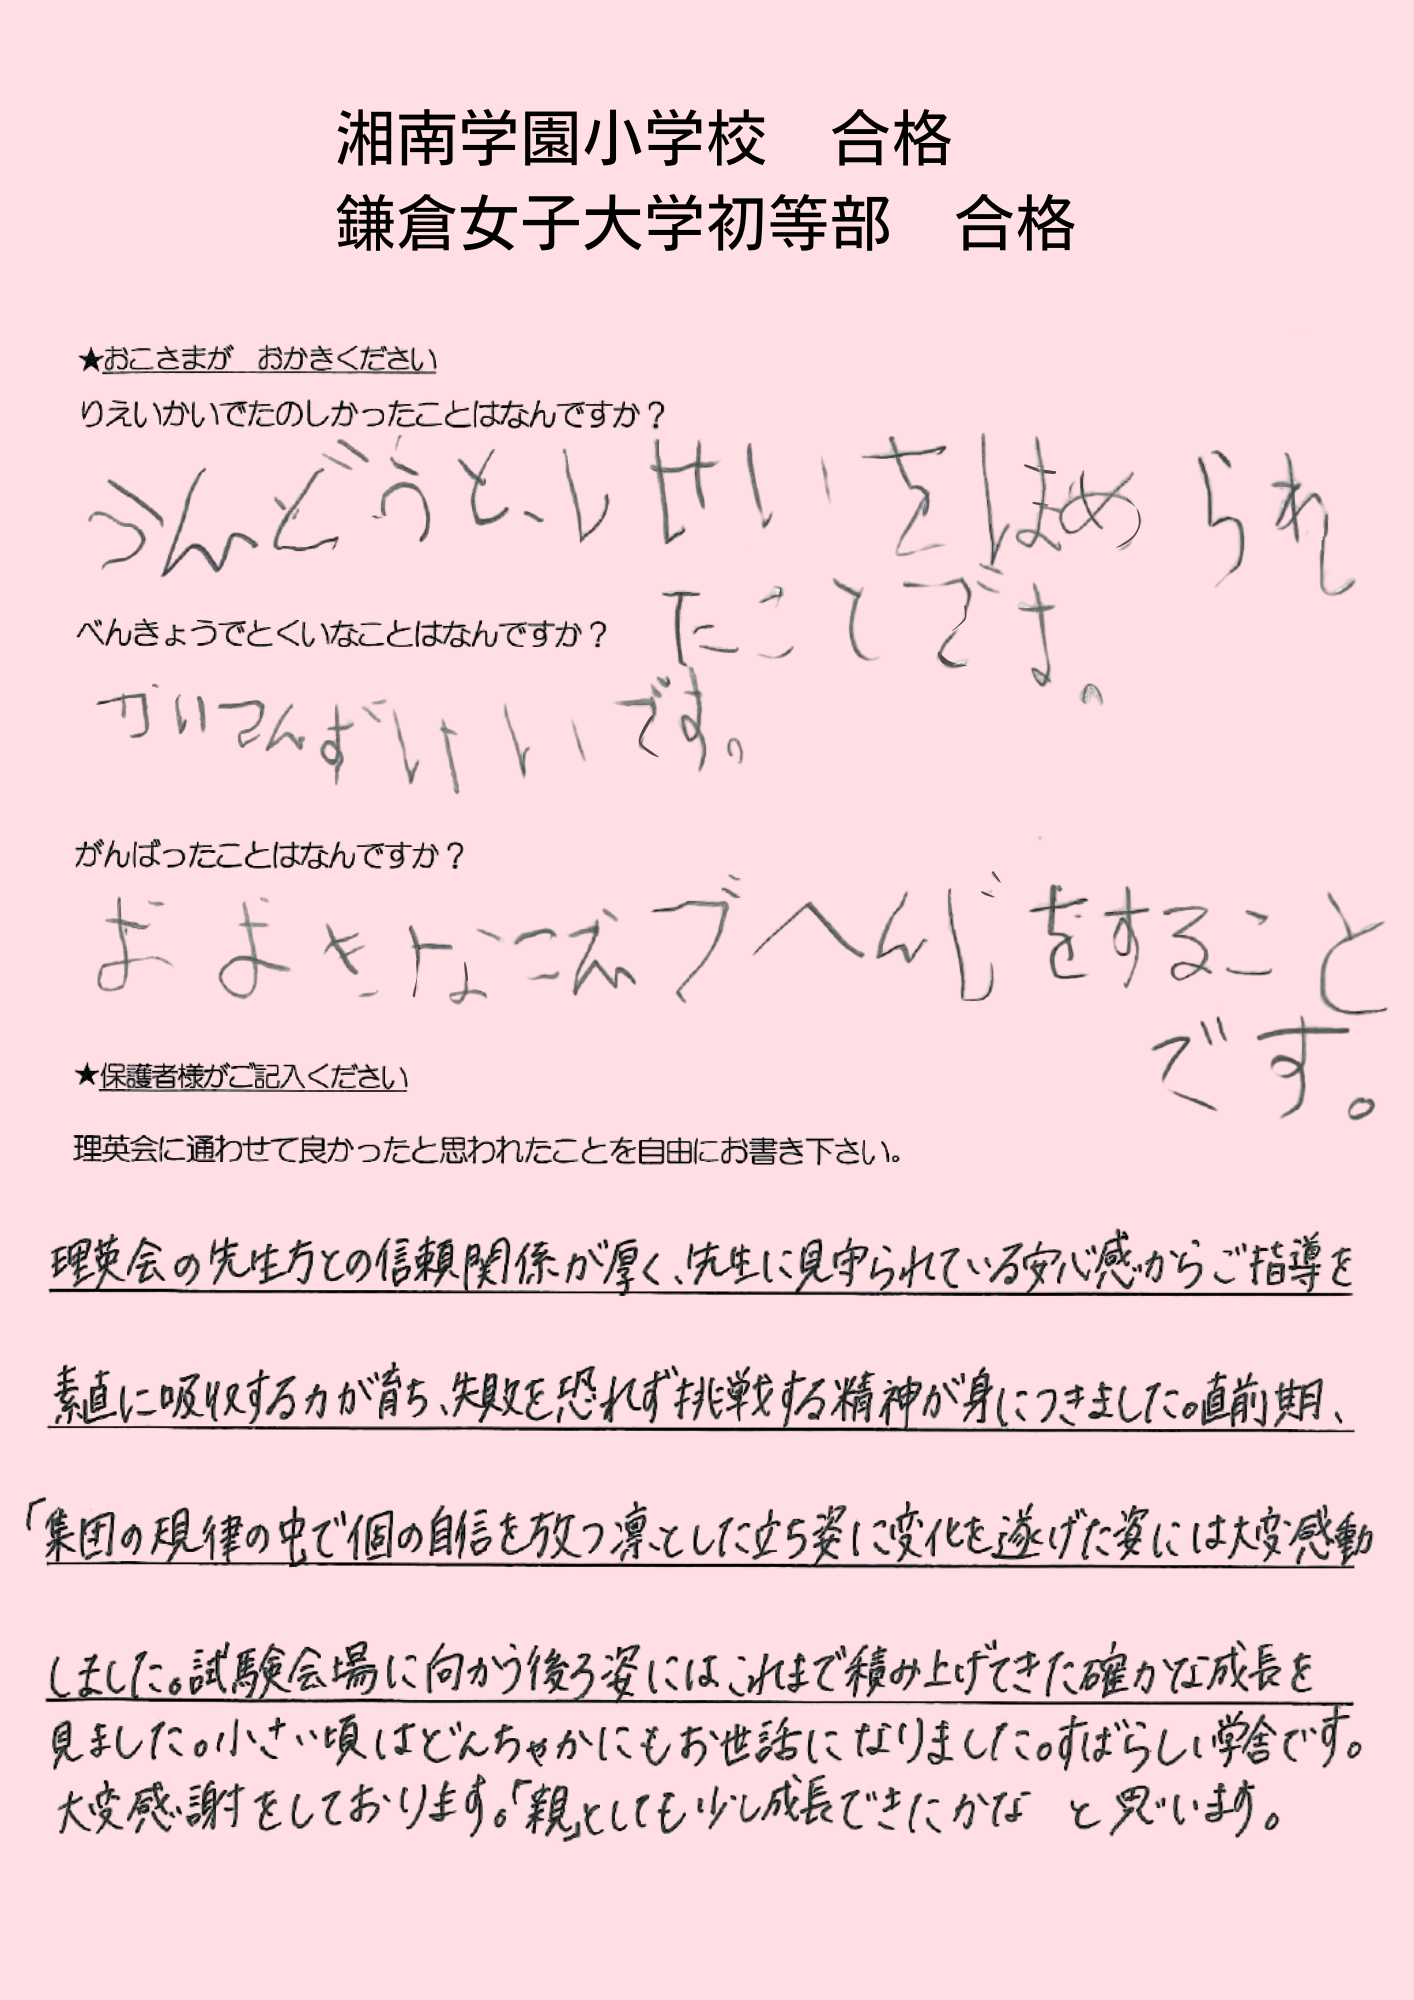 湘南学園小学校　合格
鎌倉女子大学初等部　合格
★おこさまが　おかきください
りえいかいでたのしかったことはなんですか？
うんどうと、しせいをほめられ
たことです。
べんきょうでとくいなことはなんですか？
かいてんずけいです。
がんばったことはなんですか？
おおきなこえでへんじをすること
です。
★保護者様がご記入ください
理英会に通わせて良かったと思われたことを自由にお書き下さい。
理英会の先生方との信頼関係が厚く、先生に見守られている安心感からご指導を
素直に吸収する力が育ち、失敗を恐れず挑戦する精神が身につきました。直前期、
「集団の規律の中」で個の自信を放つ凛とした立ち姿に変化を遂げた姿には大変感動
しました。試験会場に向かう後ろ姿にはこれまで積み上げてきた確かな成長を
見ました。小さい頃はどんちゃかにもお世話になりました。すばらしい学舎です。
大変感謝をしております。「親」としても少し成長できたかな　と思います。